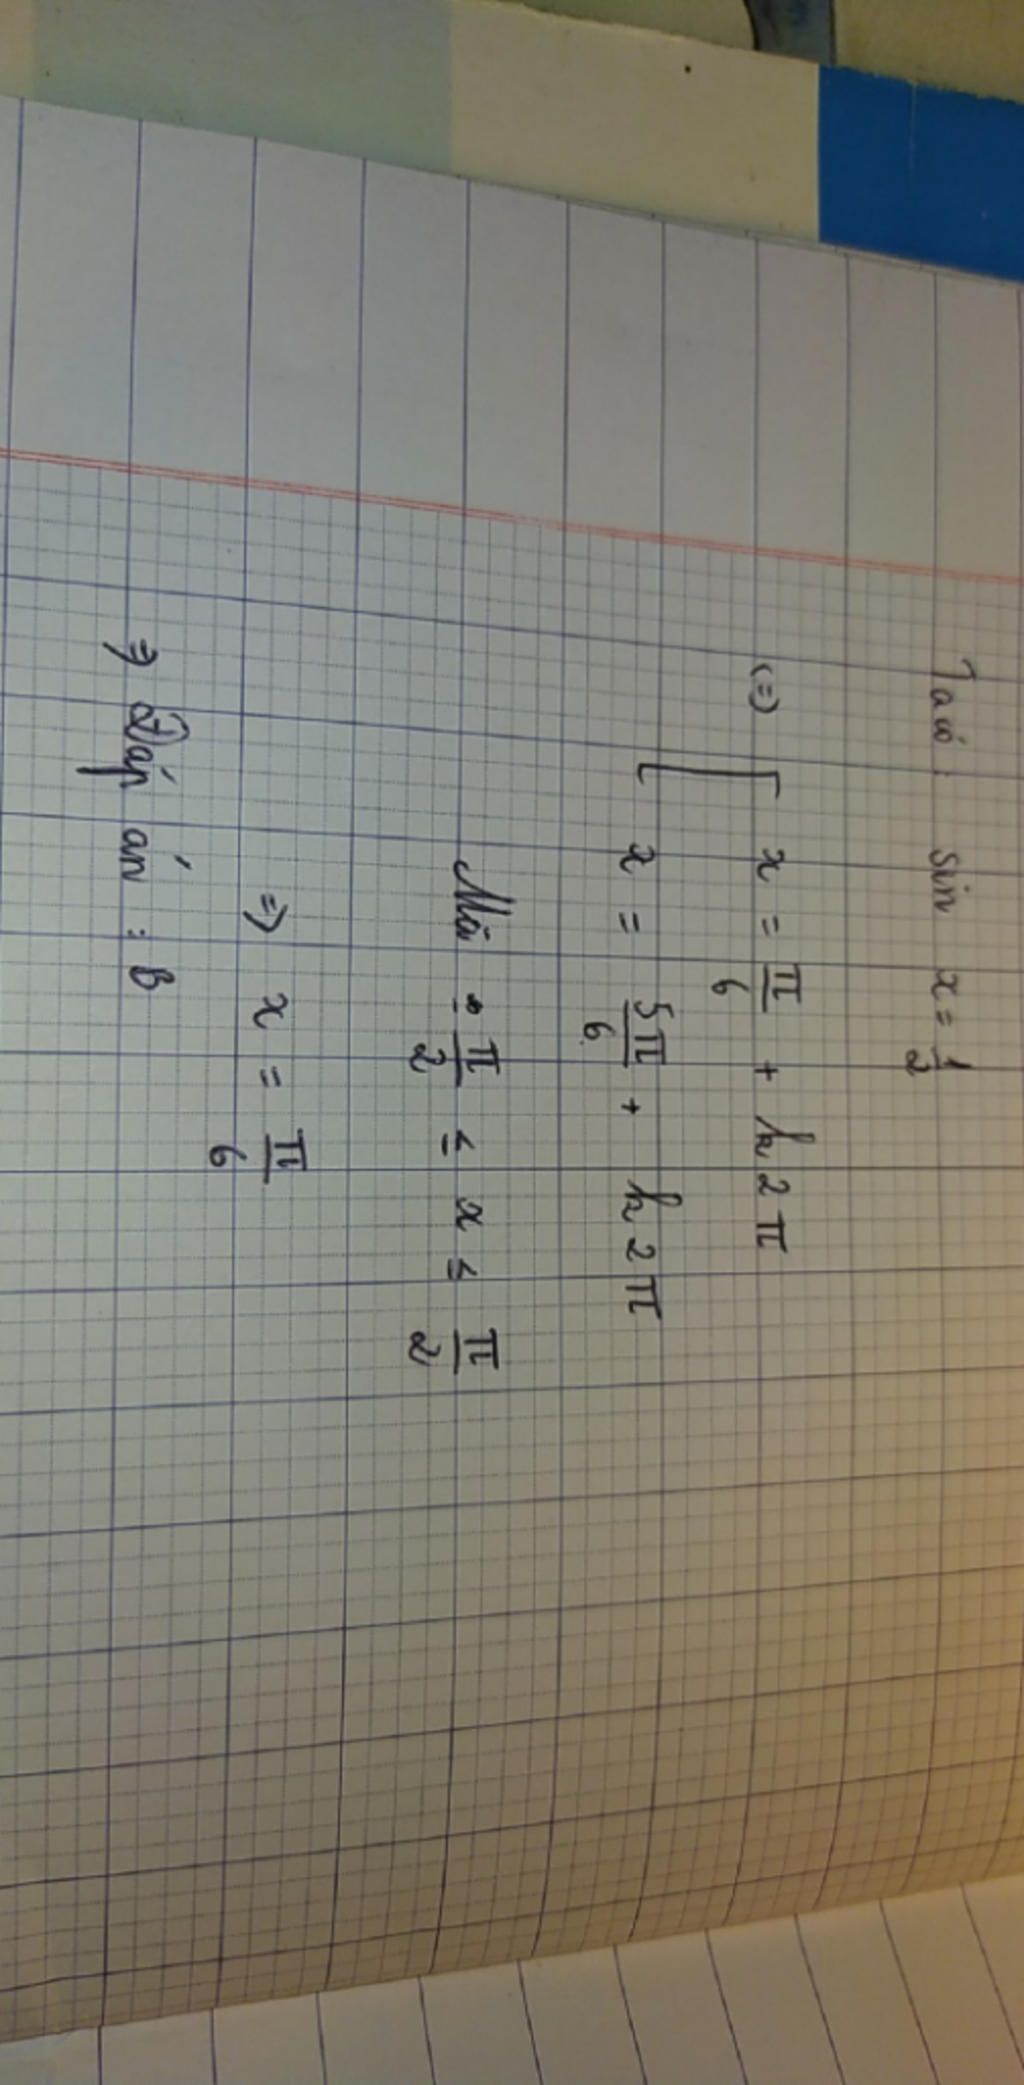 Ta có : sin x = 1/2
(=) [ x = π/6 + k2π
x = 5π/6 + k2π
Mà : -π/2 ≤ x ≤ π/2
=> x = π/6
=> Đáp án : B